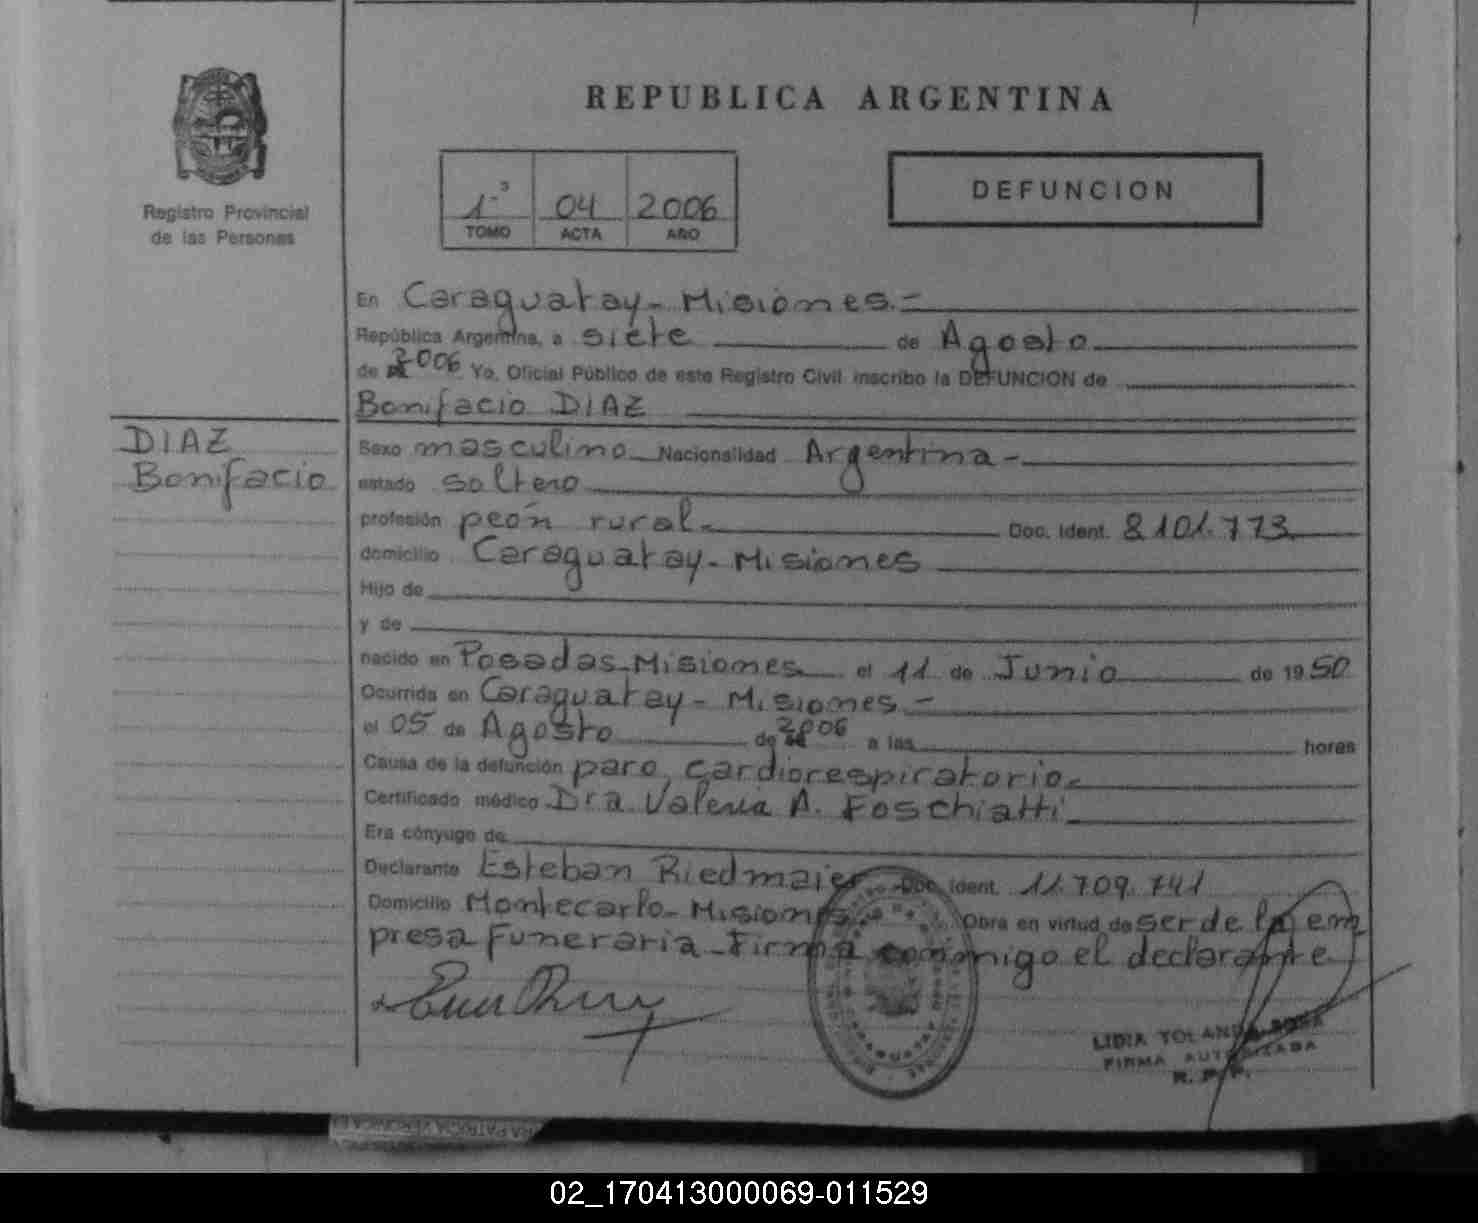 REPUBLICA ARGENTINA
Registro Provincial
de las Personas
1º 04 2006
TOMO ACTA AÑO
DEFUNCION
En Caraguatay - Misiones.-
República Argentina, a siete de Agosto
de 2006 Yo, Oficial Público de este Registro Civil inscribo la DEFUNCION de
Bonifacio DIAZ
DIAZ
Bonifacio
Sexo masculino Nacionalidad Argentina -
estado soltero
profesión peón rural. Doc. Ident. 8101.773
domicilio Caraguatay - Misiones
Hijo de
y de
nacido en Posadas - Misiones el 11 de Junio de 1950
Ocurrida en Caraguatay - Misiones -
el 05 de Agosto de 2006 a las horas
Causa de la defunción paro cardiorespiratorio.
Certificado médico Dra Valeria A. Foschiatti
Era cónyuge de
Declarante Esteban Riedmaier Doc. Ident. 11.709.741
Domicilio Montecarlo - Misiones Obra en virtud de ser de la em
presa Funeraria - Firma conmigo el declarante
LIDIA YOLANDA SOSA
FIRMA AUTORIZADA
R. P. P.
02_170413000069-011529